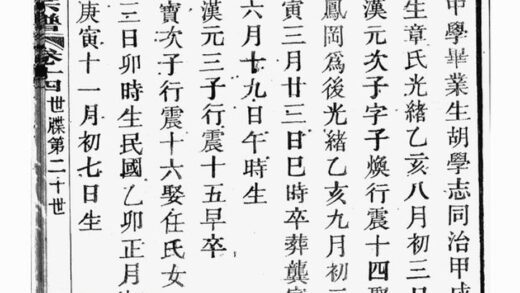 中學畢業生胡學志同治甲戌
生章氏光緒乙亥八月初三日
漢元次子字子煥行震十四娶
鳳岡爲後光緒乙亥九月初二
寅三月廿三日巳時卒葬龔家
六月十九日午時生
漢元三子行震十五早卒
寶次子行震十六娶任氏女
三日卯時生民國乙卯正月
庚寅十一月初七日生
宗譜 卷十四 世牒第二十世